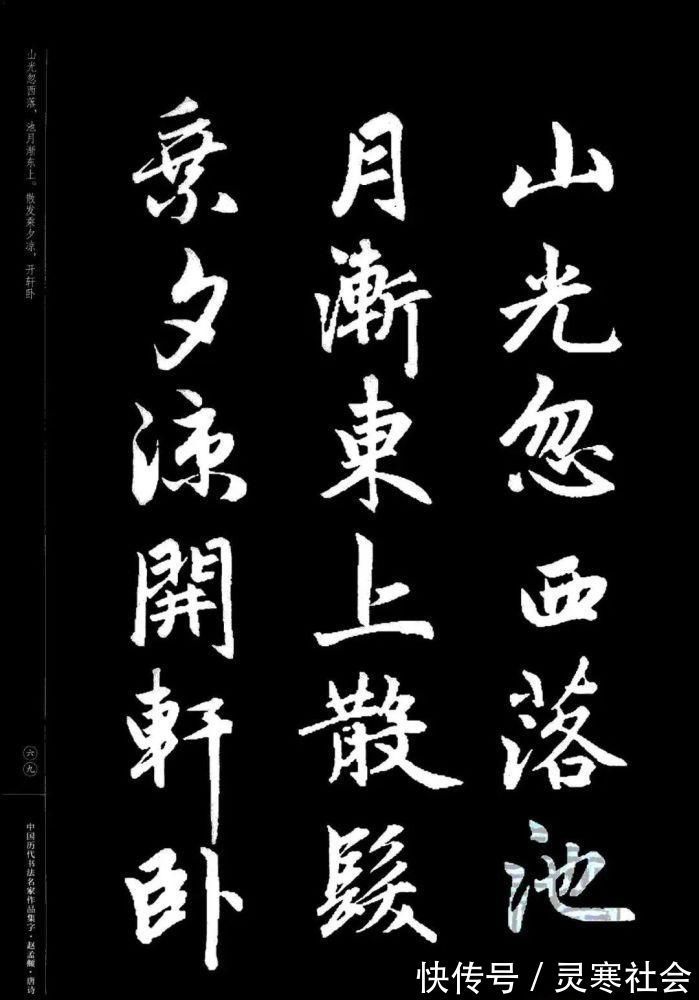 山光忽西落池
月漸東上散髮
乘夕涼開軒卧
山光忽西落，池月渐东上。散发乘夕凉，开轩卧
六九
中国历代书法名家作品集字·赵孟頫·唐诗
快传号／灵寒社会